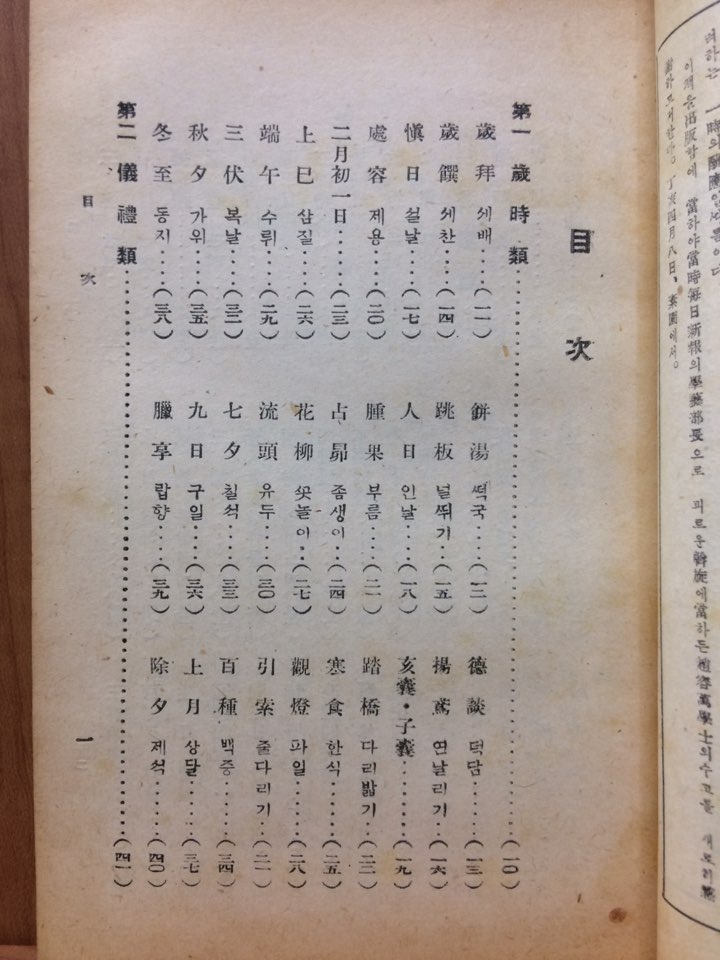 이제 을出版함에 當하야當時每日新報의學藝部長으로 괴로운斡旋에當하든趙容萬學士의수고를 새로히感
謝하고저한다。丁亥四月八日、素園에서。
目次
第一 歲時類……(一〇)
歲拜 세배……(一一) 餠湯 떡국……(一二) 德談 덕담……(一三)
歲饌 세찬……(一四) 跳板 널뛰기……(一五) 揚鳶 연날리기……(一六)
愼日 설날……(一七) 人日 인날……(一八) 亥囊・子囊……(一九)
處容 제용……(二〇) 腫果 부름……(二一) 踏橋 다리밟기……(二二)
二月初一日……(二三) 占昴 좀생이……(二四) 寒食 한식……(二五)
上巳 삼질……(二六) 花柳 꽃놀이……(二七) 觀燈 파일……(二八)
端午 수뤼……(二九) 流頭 유두……(三〇) 引索 줄다리기……(二一)
三伏 복날……(三二) 七夕 칠석……(三三) 百種 백중……(三四)
秋夕 가위……(三五) 九日 구일……(三六) 上月 상달……(三七)
冬至 동지……(三八) 臘享 랍향……(三九) 除夕 제석……(四〇)
第二 儀禮類……(四一)
目次 一